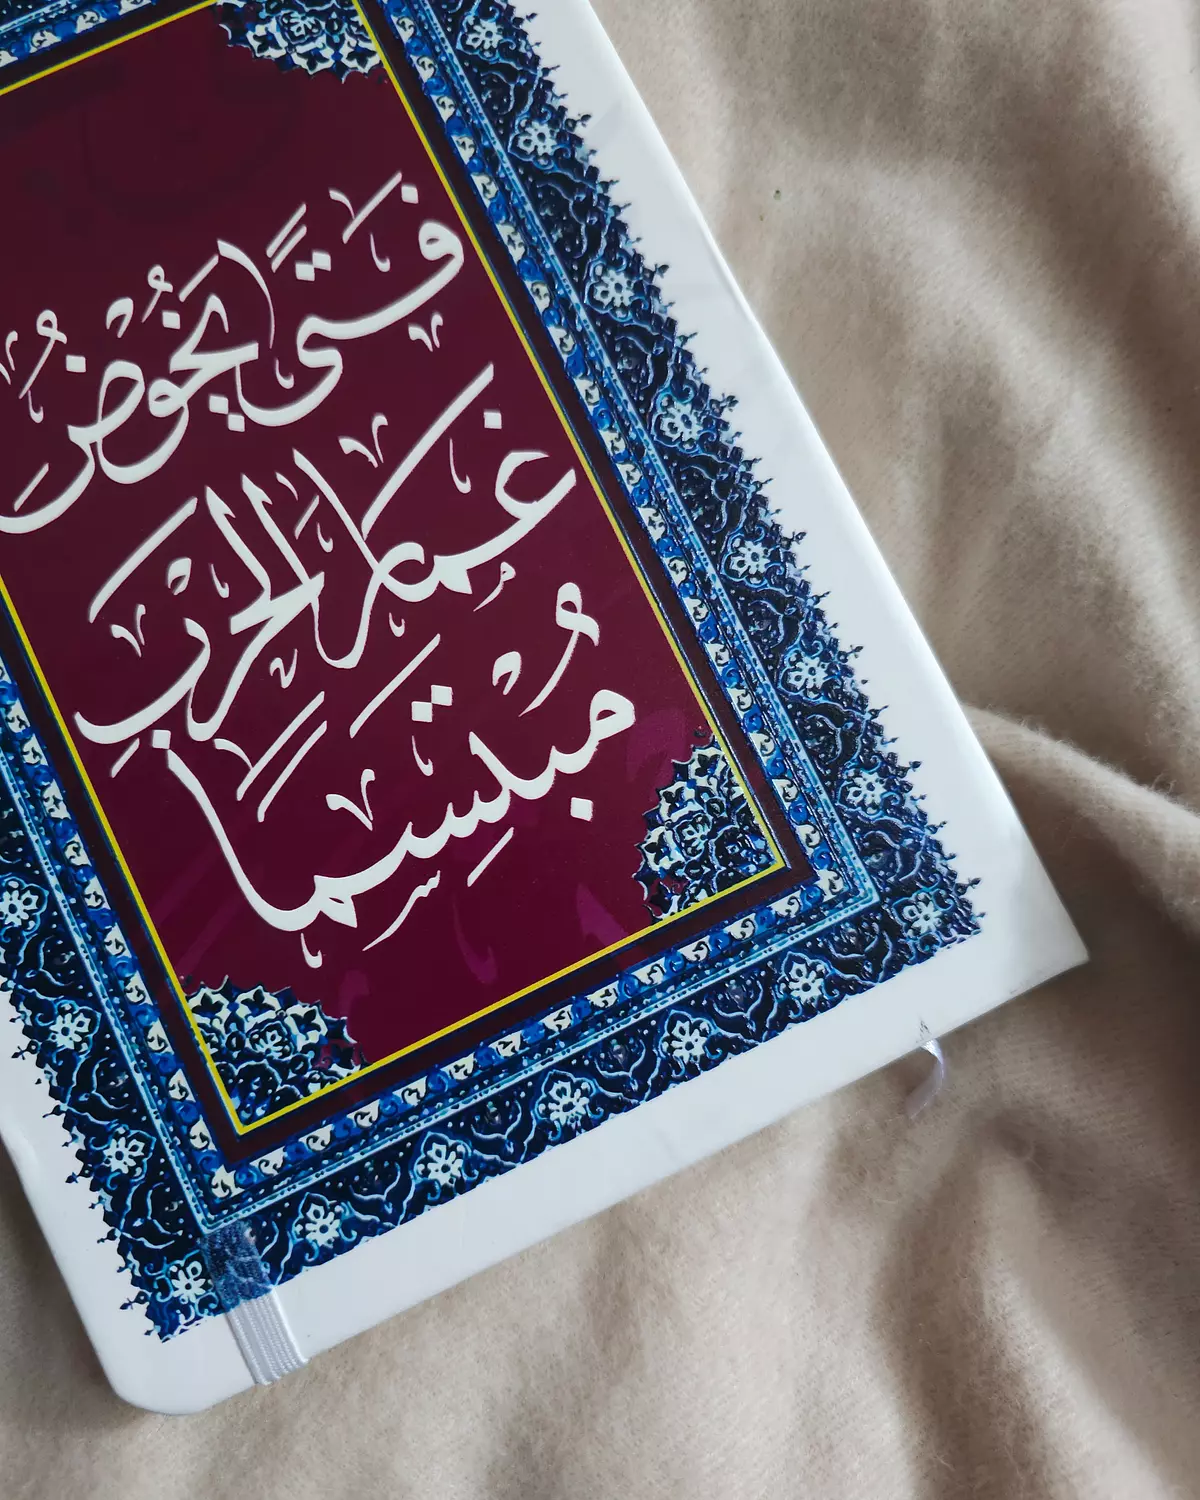 فَتىً يَخُوْضُ
غِمَارَ الحَرْبِ
مُبْتَسِماً